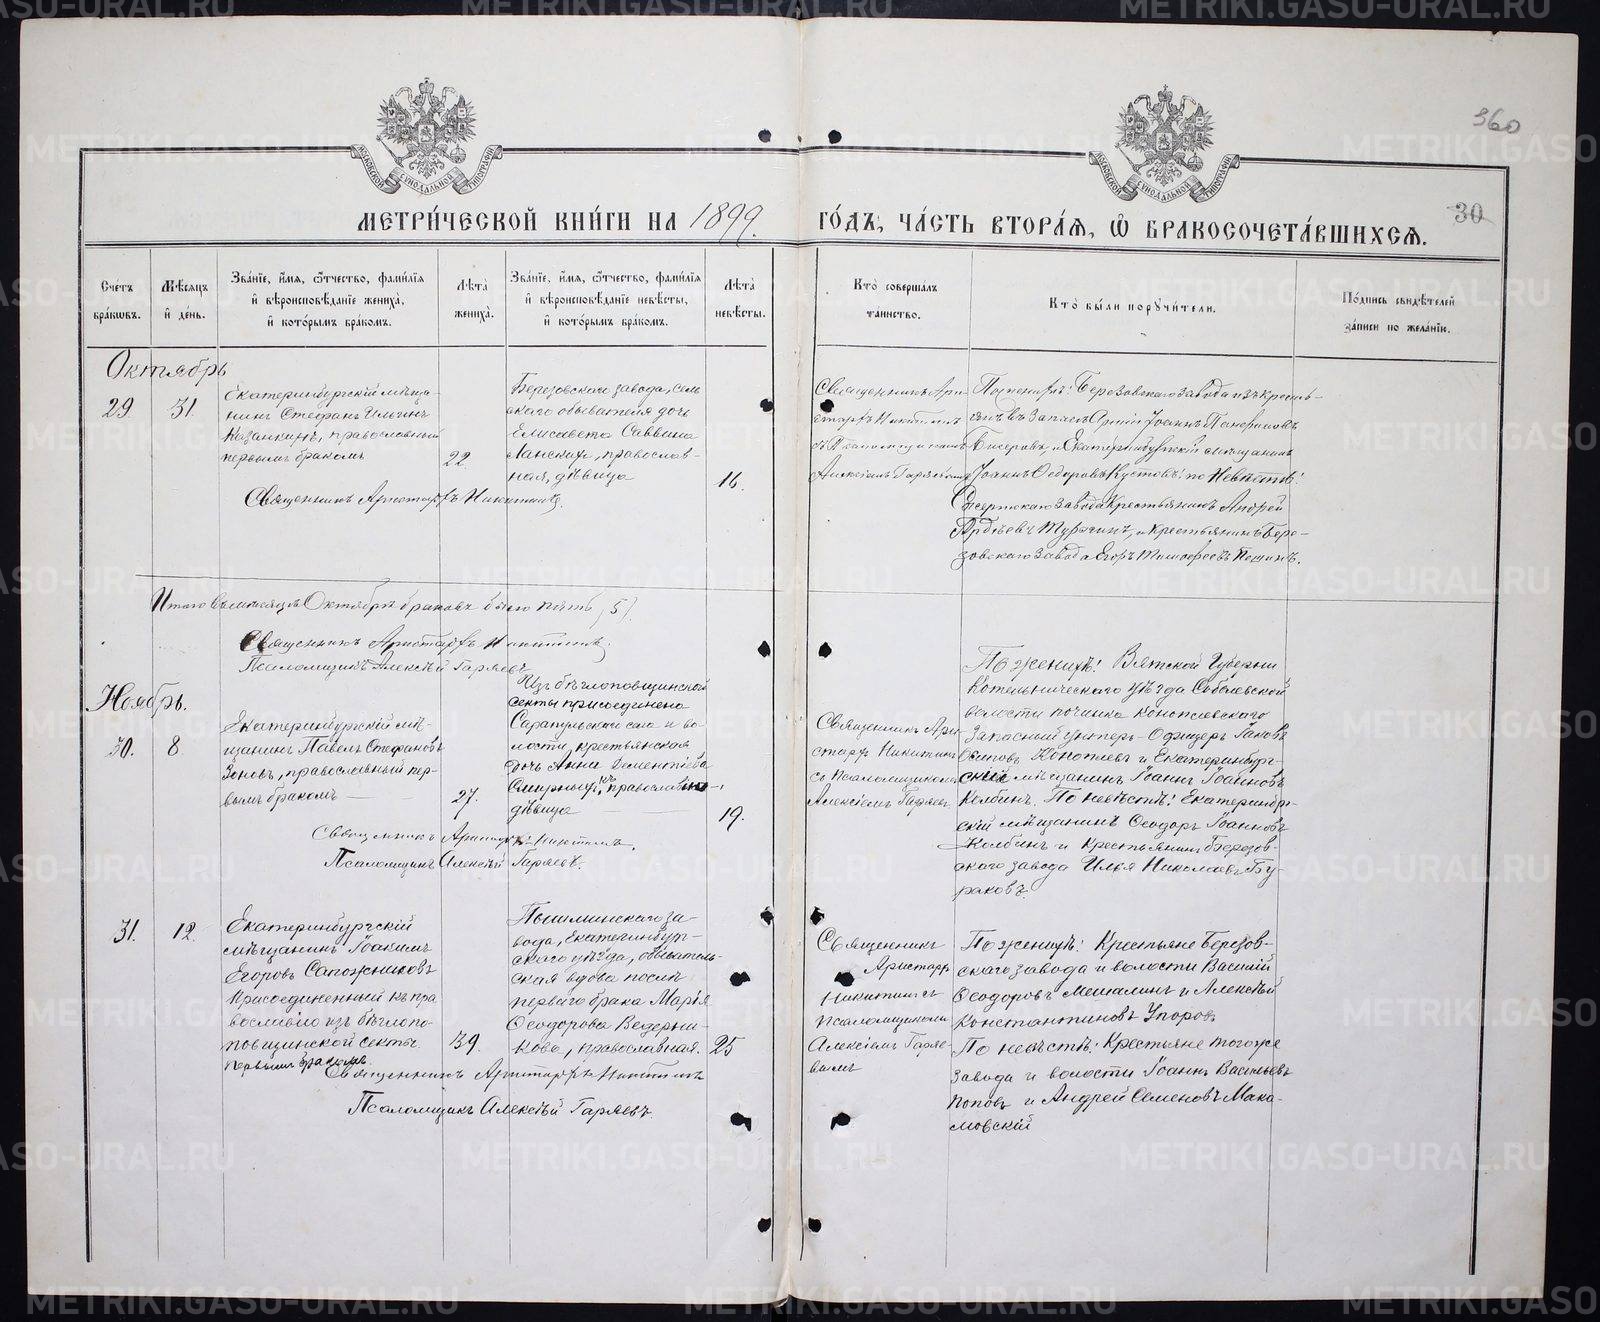 360
МОСКОВСКОЙ СѴНОДАЛЬНОЙ ТИПОГРАФІИ
МОСКОВСКОЙ СѴНОДАЛЬНОЙ ТИПОГРАФІИ
МЕТРИ́ЧЕСКОЙ КНИ́ГИ НА 1899. ГО́ДЪ, ЧА́СТЬ ВТОРА́Я, Ѿ БРАКОСОЧЕТА́ВШИХСЯ.
30
Сче́тъ бра́кѡвъ.
Мѣ́сяцъ и҆ де́нь.
Зва́нїе, и҆́мя, ѻ҆́тчество, фами́лїя и҆ вѣроисповѣ́данїе жениха̀, и҆ кото́рымъ бра́комъ.
Лѣ́та жениха̀.
Зва́нїе, и҆́мя, ѻ҆́тчество, фами́лїя и҆ вѣроисповѣ́данїе невѣ́сты, и҆ кото́рымъ бра́комъ.
Лѣ́та невѣ́сты.
Кто̀ соверша́лъ та́инство.
Кто̀ бы́ли порꙋчи́тели.
По́дпись свидѣ́телей за́писи по жела́нїю.
Октябрь
29
31.
Екатеринбургскій мѣща-
нинъ Стефанъ Ильинъ
Казанкинъ, православный
первымъ бракомъ
22.
Березовскаго завода, сель
скаго обывателя дочь
Елисавета Саввина
Ланскихъ, православ-
ная, дѣвица
16.
Священникъ Ари-
стархъ Никитинъ
съ Псаломщикомъ
Алексіемъ Гаряевымъ
По женихѣ: Березовскаго завода изъ кресть-
янъ въ Запасъ Арміи Іоаннъ Панфиловъ
Бисеровъ, и Екатеринбургскій мѣщанинъ
Іоаннъ Ѳедоровъ Кустовъ: по Невѣстѣ:
Сысертскаго завода Крестьянинъ Андрей
Турыгинъ, и крестьянинъ Бере-
зовскаго Завода Егоръ Тимофеевъ Пешинъ.
Священникъ Аристархъ Никитинъ.
Итого въ мѣсяцѣ Октябрѣ браковъ было пять (5).
Священникъ Аристархъ Никитинъ.
Псаломщикъ Алексѣй Гаряевъ
Ноябрь.
30.
8
Екатеринбургскій мѣ-
щанинъ Павелъ Стефановъ
Зоновъ, православный пер-
вымъ бракомъ
27.
Изъ бѣглопоповщинской
секты присоединена
Сарапульскаго села и во-
лости, крестьянская
дочь Анна Дементіева
Смирныхъ, къ православію,
дѣвица
19.
Священникъ Ари-
стархъ Никитинъ
съ Псаломщикомъ
Алексіемъ Гаряев
По женихѣ: Вятской Губерніи
Котельническаго уѣзда Соболевской
волости починка Конопаевскаго
Запасный унтеръ-Офицеръ Іаковъ
Осиповъ Конопаевъ и Екатеринбург-
скій мѣщанинъ Іоаннъ Іоанновъ
Колбинъ. По невѣстѣ: Екатеринбург-
скій мѣщанинъ Ѳеодоръ Іоанновъ
Колбинъ и Крестьянинъ Березов-
скаго завода Илья Николаевъ Бу-
раковъ.
Священникъ Аристархъ Никитинъ.
Псаломщикъ Алексѣй Гаряевъ.
31.
12.
Екатеринбургскій
мѣщанинъ Іоакимъ
Егоровъ Сапожниковъ
Присоединенный къ пра
вославію изъ бѣглопо-
повщинской секты.
первымъ бракомъ.
39.
Пышминскаго за-
вода, Екатеринбург-
скаго уѣзда, обыватель-
ская вдова послѣ
перваго брака Марія
Ѳеодорова Ведерни-
кова, православная.
25
Священникъ
Аристархъ
Никитинъ съ
псаломщикомъ
Алексіемъ Гаряе-
вымъ
По женихѣ: Крестьяне Березов-
скаго завода и волости Василій
Ѳеодоровъ Мешалинъ и Алексѣй
Константиновъ Упоровъ
По невѣстѣ: Крестьяне того же
завода и волости Іоаннъ Васильевъ
Поповъ и Андрей Семеновъ Мака-
мовскій
Священникъ Аристархъ Никитинъ
Псаломщикъ Алексѣй Гаряевъ.
METRIKI.GASO-URAL.RU